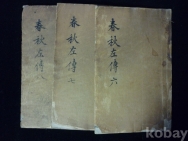 春秋左傳六
春秋左傳七
春秋左傳
kobay